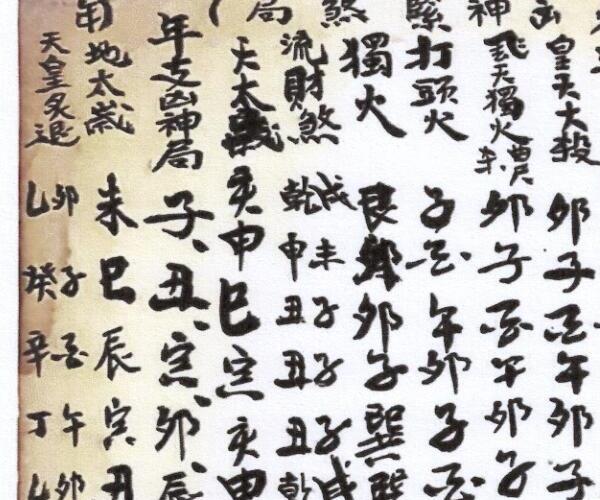 皇天大殺 卯 子 酉 午 卯 子
飛天獨火 卯 子 酉 午 卯 子
神
緊
打頭火 子 酉 午 卯 子 酉
煞
獨火 艮 卯 卯 子 巽 巽
局
流財煞 乾戌 申未 丑子 丑子 丑子 乾戌
天太歲 亥 申 巳 寅 亥 申
年支凶神局 子、丑、寅、卯、辰
地太歲 未 巳 辰 寅 丑
天皇炙退 乙卯 癸子 辛酉 丁午 乙卯